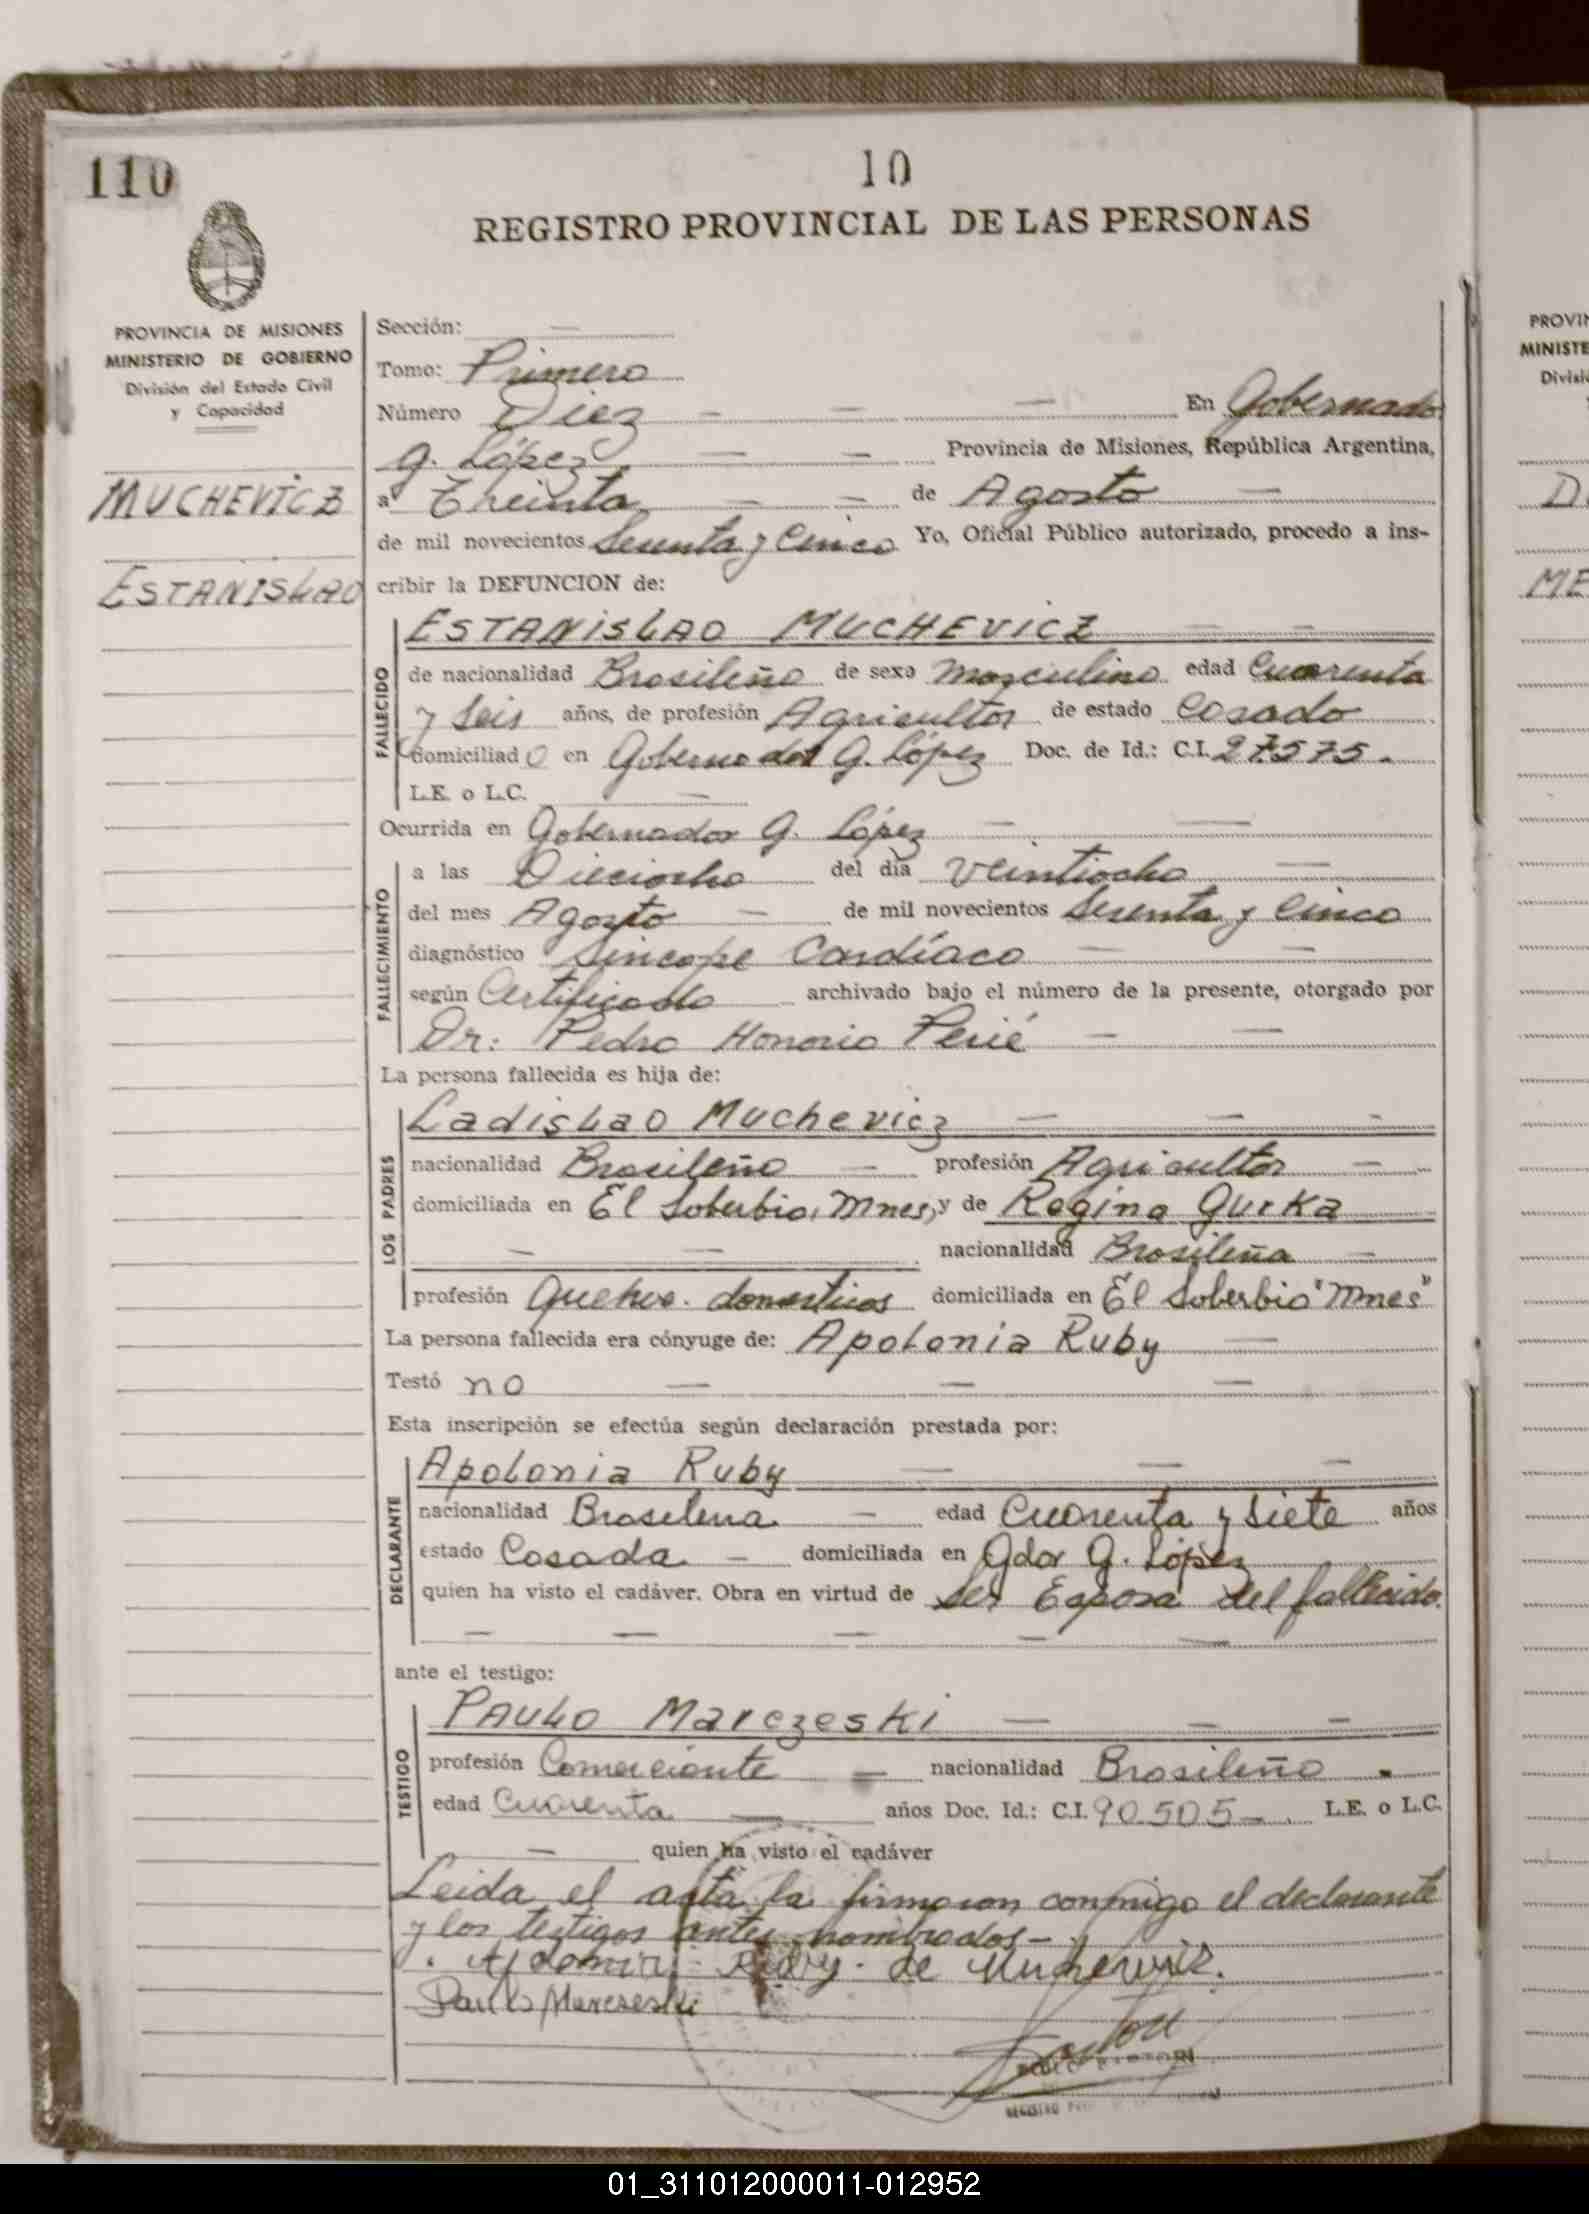 110
10
REGISTRO PROVINCIAL DE LAS PERSONAS
PROVINCIA DE MISIONES
MINISTERIO DE GOBIERNO
División del Estado Civil
y Capacidad
MUCHEVICZ
ESTANISLAO
Sección: —
Tomo: Primero
Número Diez — — — En Gobernador
G. López — — Provincia de Misiones, República Argentina,
a Treinta — — de Agosto —
de mil novecientos Sesenta y Cinco Yo, Oficial Público autorizado, procedo a ins-
cribir la DEFUNCION de:
FALLECIDO
ESTANISLAO MUCHEVICZ — —
de nacionalidad Brasileño de sexo masculino edad Cuarenta
y Seis años, de profesión Agricultor de estado Casado
domiciliado en Gobernador G. López Doc. de Id.: C.I. 27.575.
L.E. o L.C. —
Ocurrida en Gobernador G. López — —
FALLECIMIENTO
a las Dieciocho del día Veintiocho —
del mes Agosto — de mil novecientos Sesenta y Cinco
diagnóstico Sincope Cardíaco — —
según Certificado archivado bajo el número de la presente, otorgado por
Dr: Pedro Honorio Perié — —
La persona fallecida es hija de:
LOS PADRES
Ladislao Muchevicz — — -
nacionalidad Brasileño — profesión Agricultor —
domiciliada en El Soberbio, Mnes, y de Regina Gurka
— — nacionalidad Brasileña —
profesión Quehac. domesticos domiciliada en El Soberbio "Mnes"
La persona fallecida era cónyuge de: Apolonia Ruby —
Testó no — — —
Esta inscripción se efectúa según declaración prestada por:
DECLARANTE
Apolonia Ruby — — —
nacionalidad Brasilena — edad Cuarenta y Siete años
estado Casada — domiciliada en Gdor G. López
quien ha visto el cadáver. Obra en virtud de ser Esposa del fallecido.
— — — — —
ante el testigo:
TESTIGO
PAULO Marczeski — — —
profesión Comerciante — nacionalidad Brasileño -
edad Cuarenta — años Doc. Id.: C.I. 90.505 — L.E. o L.C.
— quien ha visto el cadáver
Leida el acta la firmaron conmigo el declarante
y los testigos antes nombrados-
Apolonia Ruby de Muchevicz.
Paulo Marczeski
PROVIN
MINISTE
Divisi
ME
01_311012000011-012952